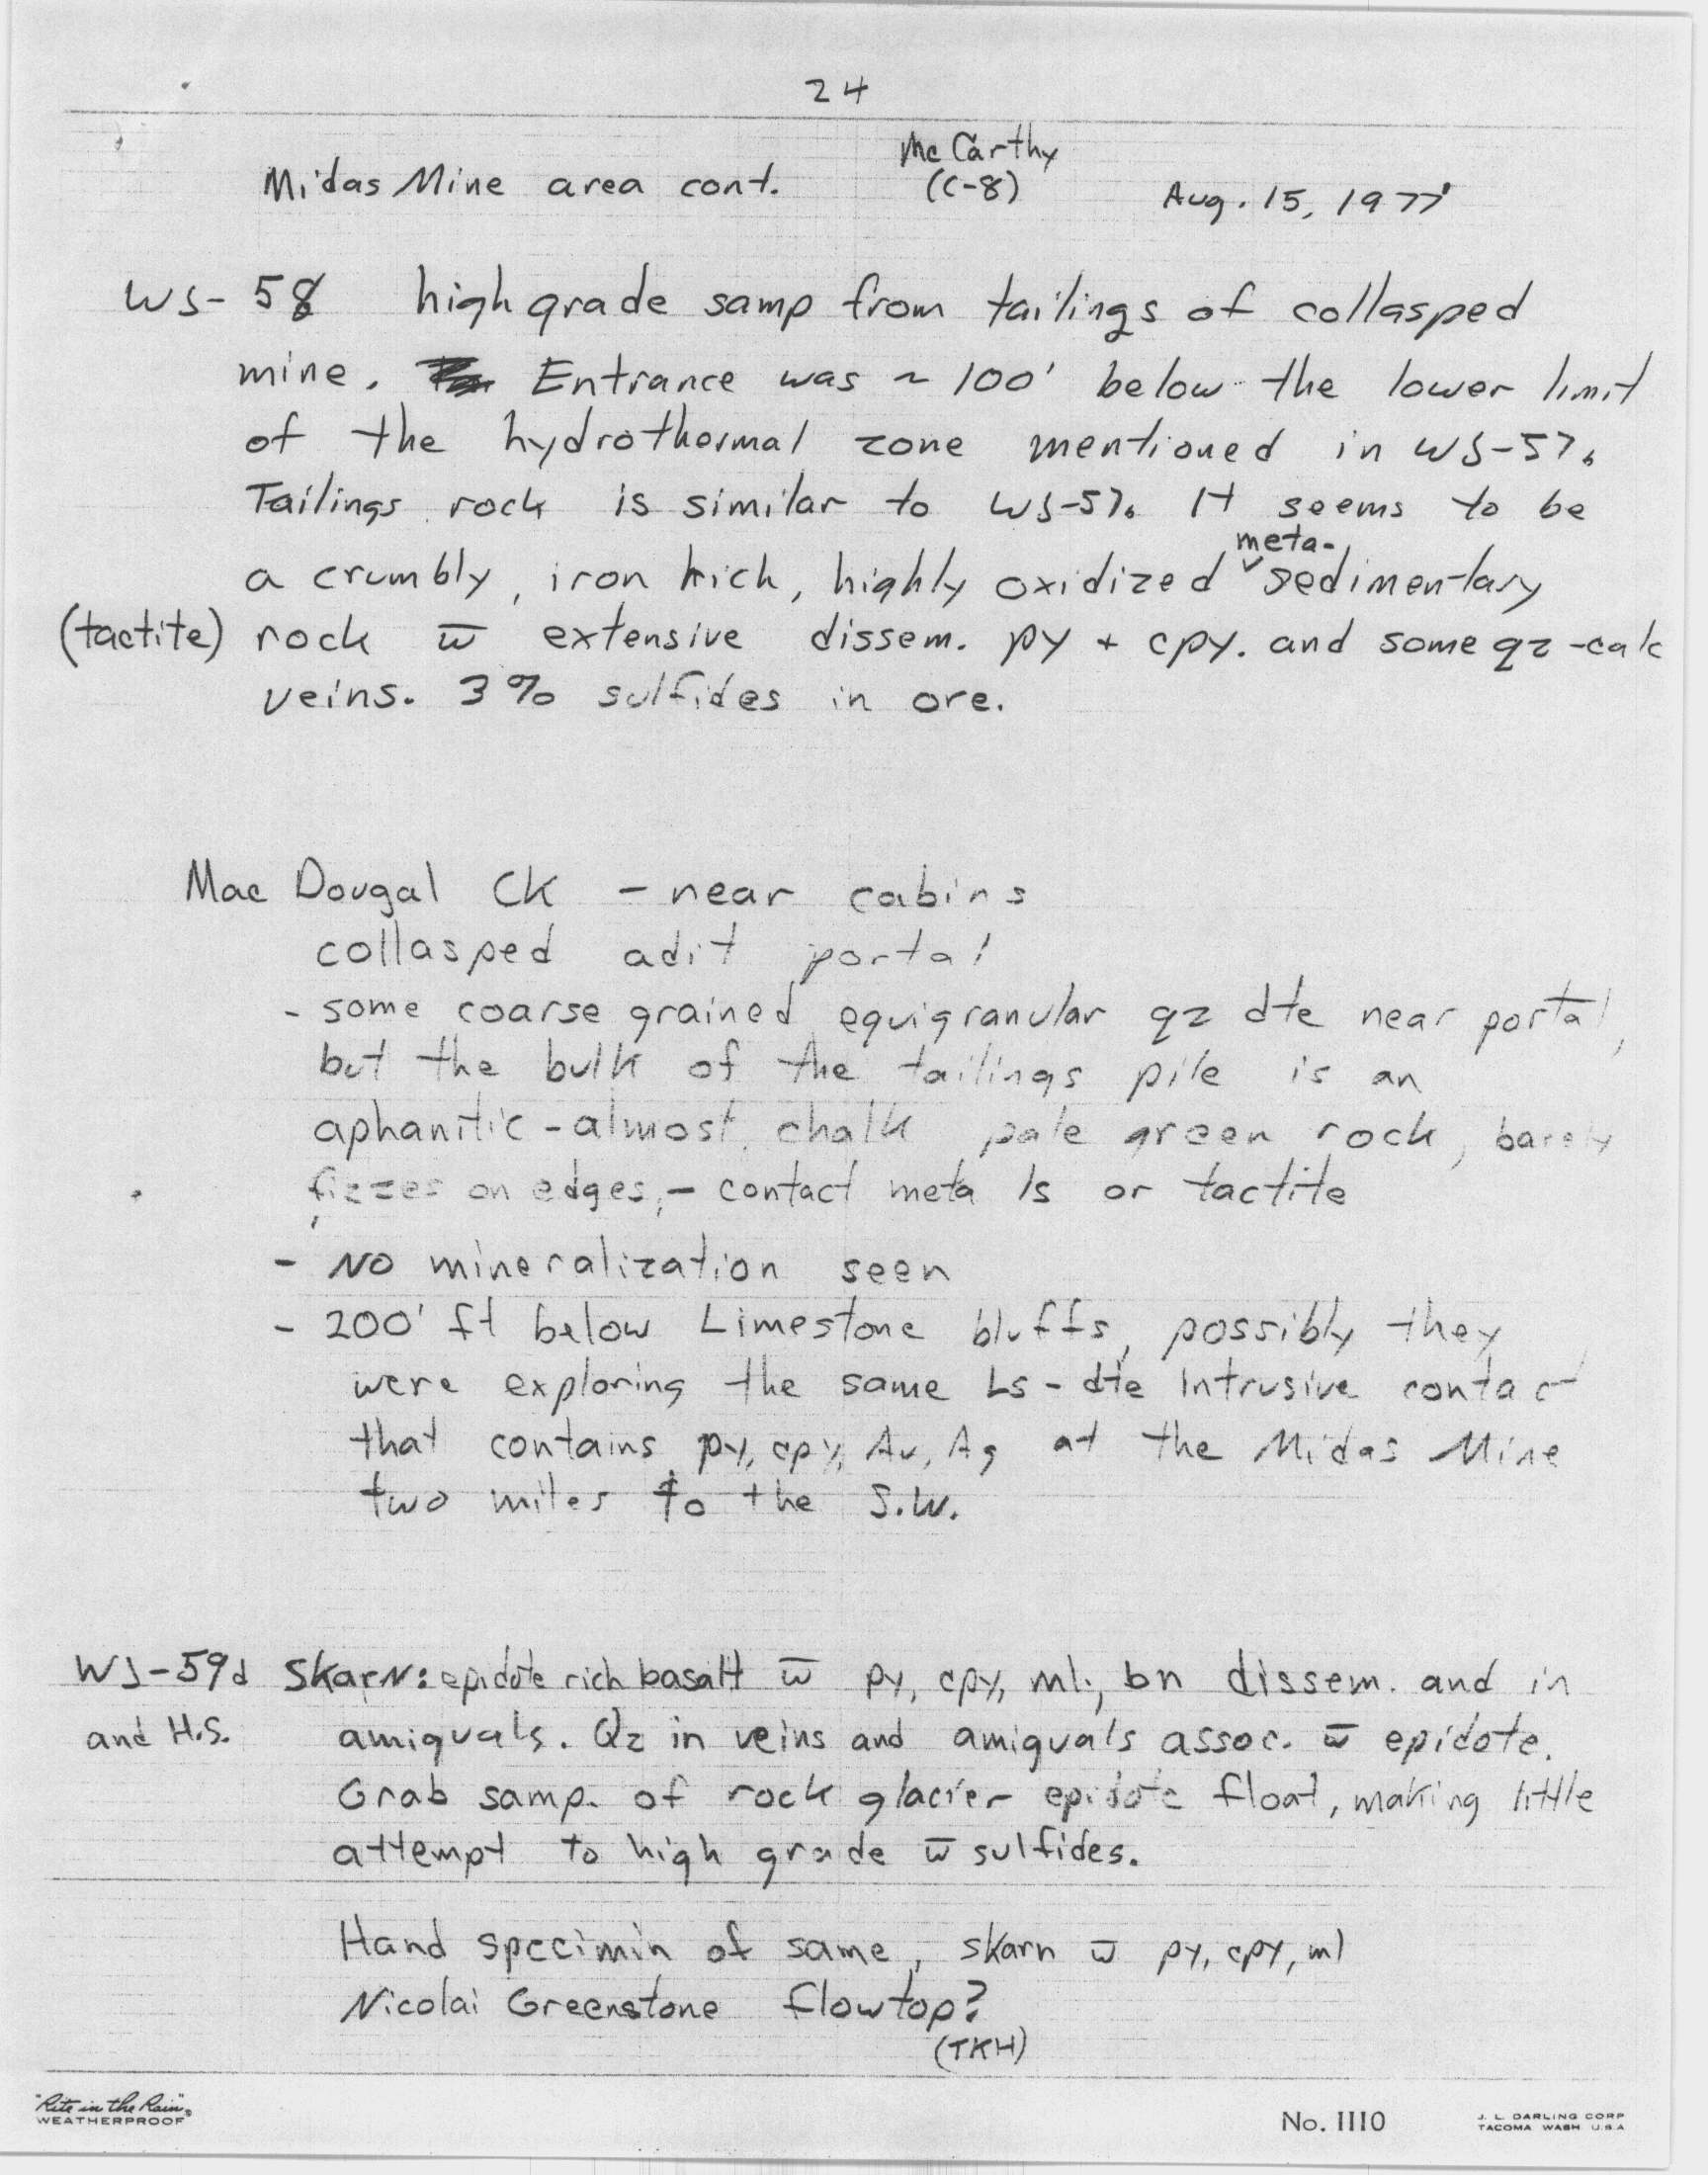 24
Mc Carthy
Midas Mine area cont. (C-8) Aug. 15, 1977
WS-58 high grade samp from tailings of collasped
mine. Entrance was ~ 100' below the lower limit
of the hydrothermal zone mentioned in WS-57.
Tailings rock is similar to WS-57. It seems to be
meta-
a crumbly, iron rich, highly oxidized sedimentary
(tactite) rock w̅ extensive dissem. py + cpy. and some qz-calc
veins. 3% sulfides in ore.
Mac Dougal CK - near cabins
collasped adit portal
- some coarse grained equigranular qz dte near portal,
but the bulk of the tailings pile is an
aphanitic - almost chalk pale green rock, barely
fizzes on edges, - contact meta ls or tactite
- NO mineralization seen
- 200' ft below Limestone bluffs, possibly they
were exploring the same Ls - dte Intrusive contact
that contains py, cpy, Au, Ag at the Midas Mine
two miles to the S.W.
WS-59d Skarn: epidote rich basalt w̅ py, cpy, ml, bn dissem. and in
and H.S. amiguals. Qz in veins and amiguals assoc. w̅ epidote.
Grab samp. of rock glacier epidote float, making little
attempt to high grade w̅ sulfides.
Hand specimin of same, skarn w̅ py, cpy, ml
Nicolai Greenstone flowtop?
(TKH)
"Rite in the Rain"
WEATHERPROOF
No. 1110
J. L. DARLING CORP
TACOMA WASH U.S.A